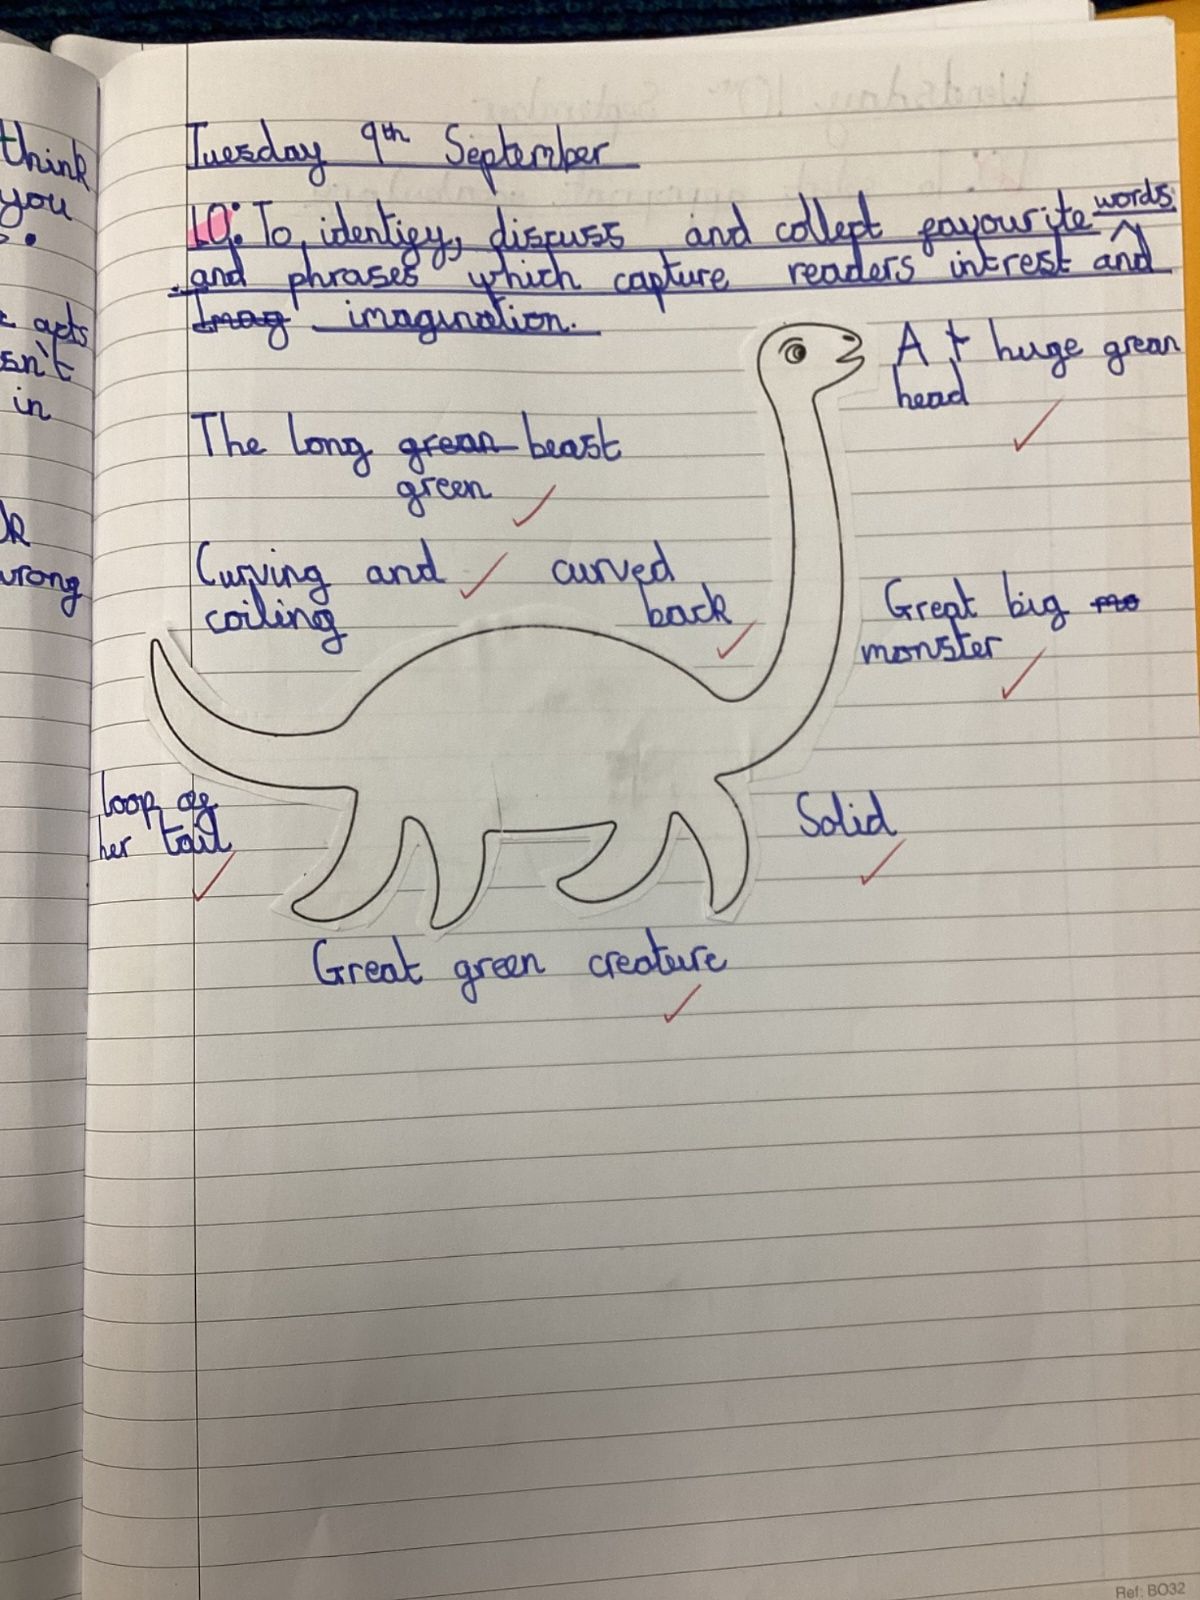 think
you
s.
acts
sn't
in
wrong
Tuesday 9th September
LQ: To identify, discuss and collect favourite words
and phrases which capture readers intrest and
Imag imagination.
A t huge grean
head
The long grean beast
green
Curving and curved
coiling back
Great big mo
monster
loop of
her tail
Solid
Great green creature
Ref: BO32